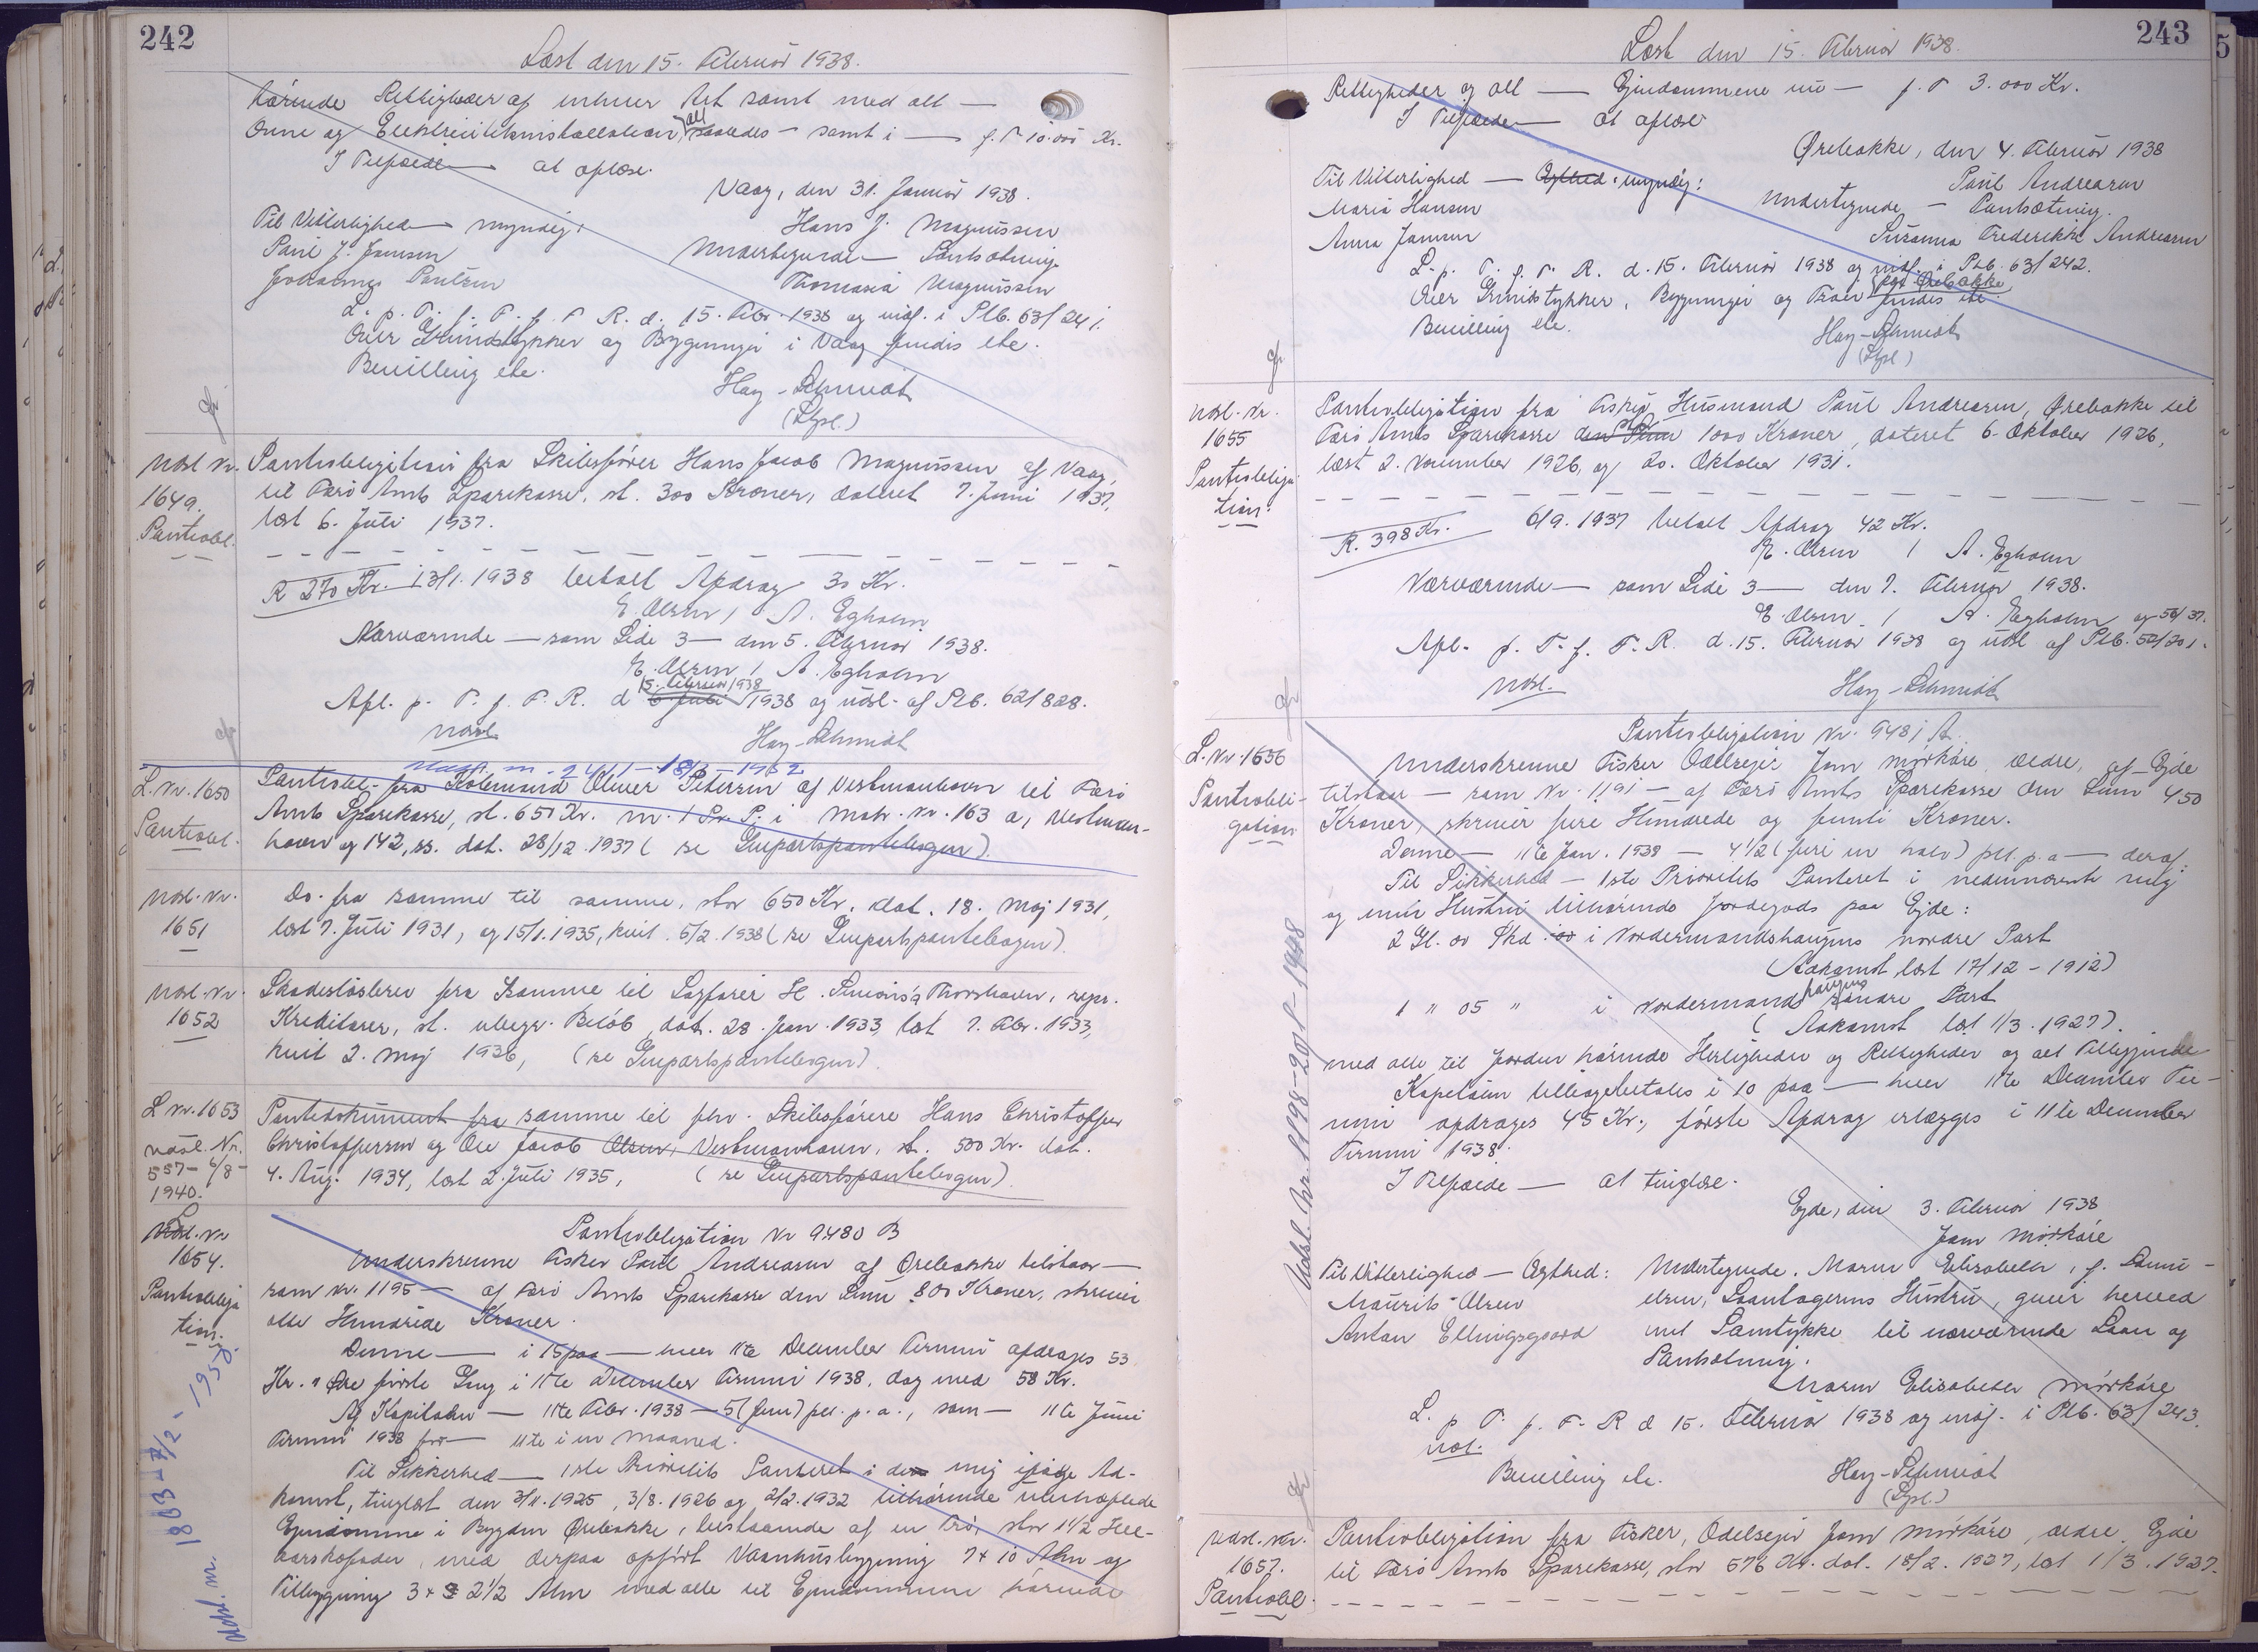 242
Læst den 15. Februar 1938.
hørende Rettigheder af enhver Art samt med alt —
Ovne og Elektricitetsinstallation, alt saaledes — samt i — f. T 10.000 Kr.
I Tilfælde — at aflæse.
Vaag, den 31. Januar 1938.
Til Vitterlighed — myndig:
Hans J. Magnussen
Poul J. Jensen
Undertegnede — Pantsætning.
Johannes Poulsen
Thomasia Magnussen
L. p. T. f. F. R. d. 15. Febr. 1938 og indf. i Plb. 63/241.
Over Grundstykker og Bygninger i Vaag findes ete.
Bevilling ete.
Hay-Schmidt
(Lspl.)
Udsl. Nr.
1649.
Pantobl.
Pantobligation fra Skibsfører Hans Jacob Magnussen af Vaag,
til Færø Amts Sparekasse, st. 300 Kroner, dateret 7. Juni 1937,
læst 6. Juli 1937.
R 270 Kr. 13/1. 1938 betalt Afdrag 30 Kr.
E. Olsen / A. Egholm
Nærværende — som Side 3 — den 5. Februar 1938.
E. Olsen / A. Egholm
15. Februar 1938
Afl. p. T. f. F. R. d 6 Juli 1938 og udsl. af Plb. 62/828.
Udsl.
Hay-Schmidt
L. Nr. 1650
Pantobl.
Pantobl. fra Købmand Oliver Petersen af Vestmanhavn til Færø
Amts Sparekasse, st. 650 Kr. m. 1 Pr. P. i Matr. Nr. 163 a, Vestman-
havn og 142, ss. dat. 28/12 1937 (se Genpartspantebogen).
Udsl. Nr.
1651
Do. fra samme til samme, stor 650 Kr. dat. 18. Maj 1931,
læst 7. Juli 1931, og 15/1. 1935, kvit. 5/2. 1938 (se Genpartspantebogen).
Udsl. Nr.
1652
Skadesløsbrev fra Samme til Sagfører H. Thorshavn, repr.
Kreditorer, st. ubegr. Beløb, dat. 28. Jan. 1933, læst 7. Febr. 1933,
kvit 2. Maj 1936, (se Genpartspantebogen).
L Nr. 1653
Udsl. Nr.
557 - 6/8 -
1940.
Pantedokument fra samme til fhv. Skibsførere Hans Christoffer
Christoffersen og Ole Jacob Olsen, Vestmanhavn, st. 500 Kr. dat.
4. Aug. 1934, læst 2. Juli 1935, (se Genpartspantebogen).
L
Udsl. Nr.
1654.
Pantobliga
tion.
Udsl. nr. 1883 - 7/2 - 195
Pantobligation Nr 9480 B
Underskrevne Fisker Poul Andreasen af Ørebakke tilstaar —
som Nr. 1195 — af Færø Amts Sparekasse den Sum 800 Kroner, skriver
otte Hundrede Kroner.
Denne — i 15 paa — hver 11te December Termin afdrages 53
Kr. " Øre første Gang i 11te December Termin 1938, dog med 58 Kr.
Af Kapitalen — 11te Febr. 1938 — 5 (fem) pct. p. a., som — 11te Juni
Termin 1938 for — 11te i en Maaned.
Til Sikkerhed — 1ste Prioritets Panteret i den mig ifølge Ad-
komst, tinglæst den 3/11. 1925, 3/8. 1926 og 2/2. 1932 tilhørende ubehæftede
Ejendomme i Bygden Ørebakke, bestaaende af en Trø, stor 1 1/2 Hel-
aarskofoder, med derpaa opført Vaanhusbygning 7 x 10 Alen og
Tilbygning 3 x 2 1/2 Alen med alle til Ejendommene hørende
243
Læst den 15. Februar 1938.
Rettigheder og alt — Ejendommene nu — f. T 3.000 Kr.
I Tilfælde — at aflæse
Ørebakke, den 4. Februar 1938
Til Vitterlighed — Ægthed. myndig:
Poul Andreasen
Maria Hansen
Undertegnede — Pantsætning.
Anna Jensen
Susanna Frederikke Andreasen
L. p. T. f. F. R. d. 15. Februar 1938 og indf. i Plb. 63/242.
Over Grundstykker, Bygninger og Trøer paa Ørebakke, findes ete.
Bevilling ete.
Hay-Schmidt
(Lspl.)
Udsl. Nr.
1655
Pantobliga
tion.
Pantobligation fra Fisker, Husmand Poul Andreasen, Ørebakke til
Færø Amts Sparekasse den Sum st. 1000 Kroner, dateret 6. Oktober 1926,
læst 2. November 1926, og 20. Oktober 1931.
R. 398 Kr. 6/9. 1937 betalt Afdrag 42 Kr.
E. Olsen / A. Egholm
Nærværende — som Side 3 — den 7. Februar 1938.
E. Olsen / A. Egholm
Afl. p. T. f. F. R. d. 15. Februar 1938 og udsl af Plb. 52/301. og 56/37.
Udsl.
Hay-Schmidt
L. Nr. 1656
Pantobli-
gation
Udsl. Nr. 1198-20/1-1948
Pantobligation Nr. 9481 A.
Underskrevne Fisker Odelsejer Jom Mørkøre, ældre, af Ejde
tilstaar — som Nr. 1191 — af Færø Amts Sparekasse den Sum 450
Kroner, skriver fire Hundrede og femti Kroner.
Denne — 11te Jan. 1938 — 4 1/2 (fire en halv) pct. p. a — deraf.
Til Sikkerhed — 1ste Prioritets Panteret i nedennævnte mig
og min Hustru tilhørende Jordegods paa Ejde:
2 Gl. 00 Skd i Nordermandshaugens nordre Part
(Adkomst læst 17/12 - 1912)
1 " 05 " i Nordermandshaugens søndre Part
(Adkomst læst 1/3. 1927).
med alle til Jorden hørende Herligheder og Rettigheder og alt Tilliggende
Kapitalen tilbagebetales i 10 paa — hver 11te December Ter-
min afdrages 45 Kr., første Afdrag erlægges i 11te December
Termin 1938.
I Tilfælde — at tinglæse.
Ejde, den 3. Februar 1938
Jom Mørkøre
Til Vitterlighed — Ægthed:
Maurits Olsen
Anton Ellingsgaard
Undertegnede. Maren Elisabeth, f. Dani-
elsen, Laantagerens Hustru, giver herved
mit Samtykke til nærværende Laan og
Pantsætning.
Maren Elisabeth Mørkøre
L. p T. f. F. R d 15. Februar 1938 og indf. i Plb. 63/243.
Bevilling ete.
Hay-Schmidt
(Lspl.)
Udsl. Nr.
1657.
Pantobl.
Pantobligation fra Fisker, Odelsejer Jom Mørkøre, ældre, Ejde
til Færø Amts Sparekasse, stor 576 Kr. dat. 18/2. 1927, læst 1/3. 1927.